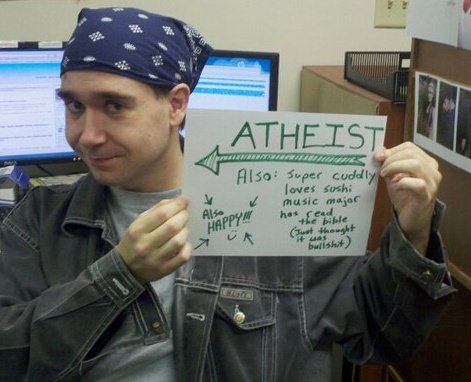 ATHEIST
Also: Super cuddly
loves sushi
music major
has read
the bible
(Just thought
it was
bullshit)
Also
HAPPY!!!